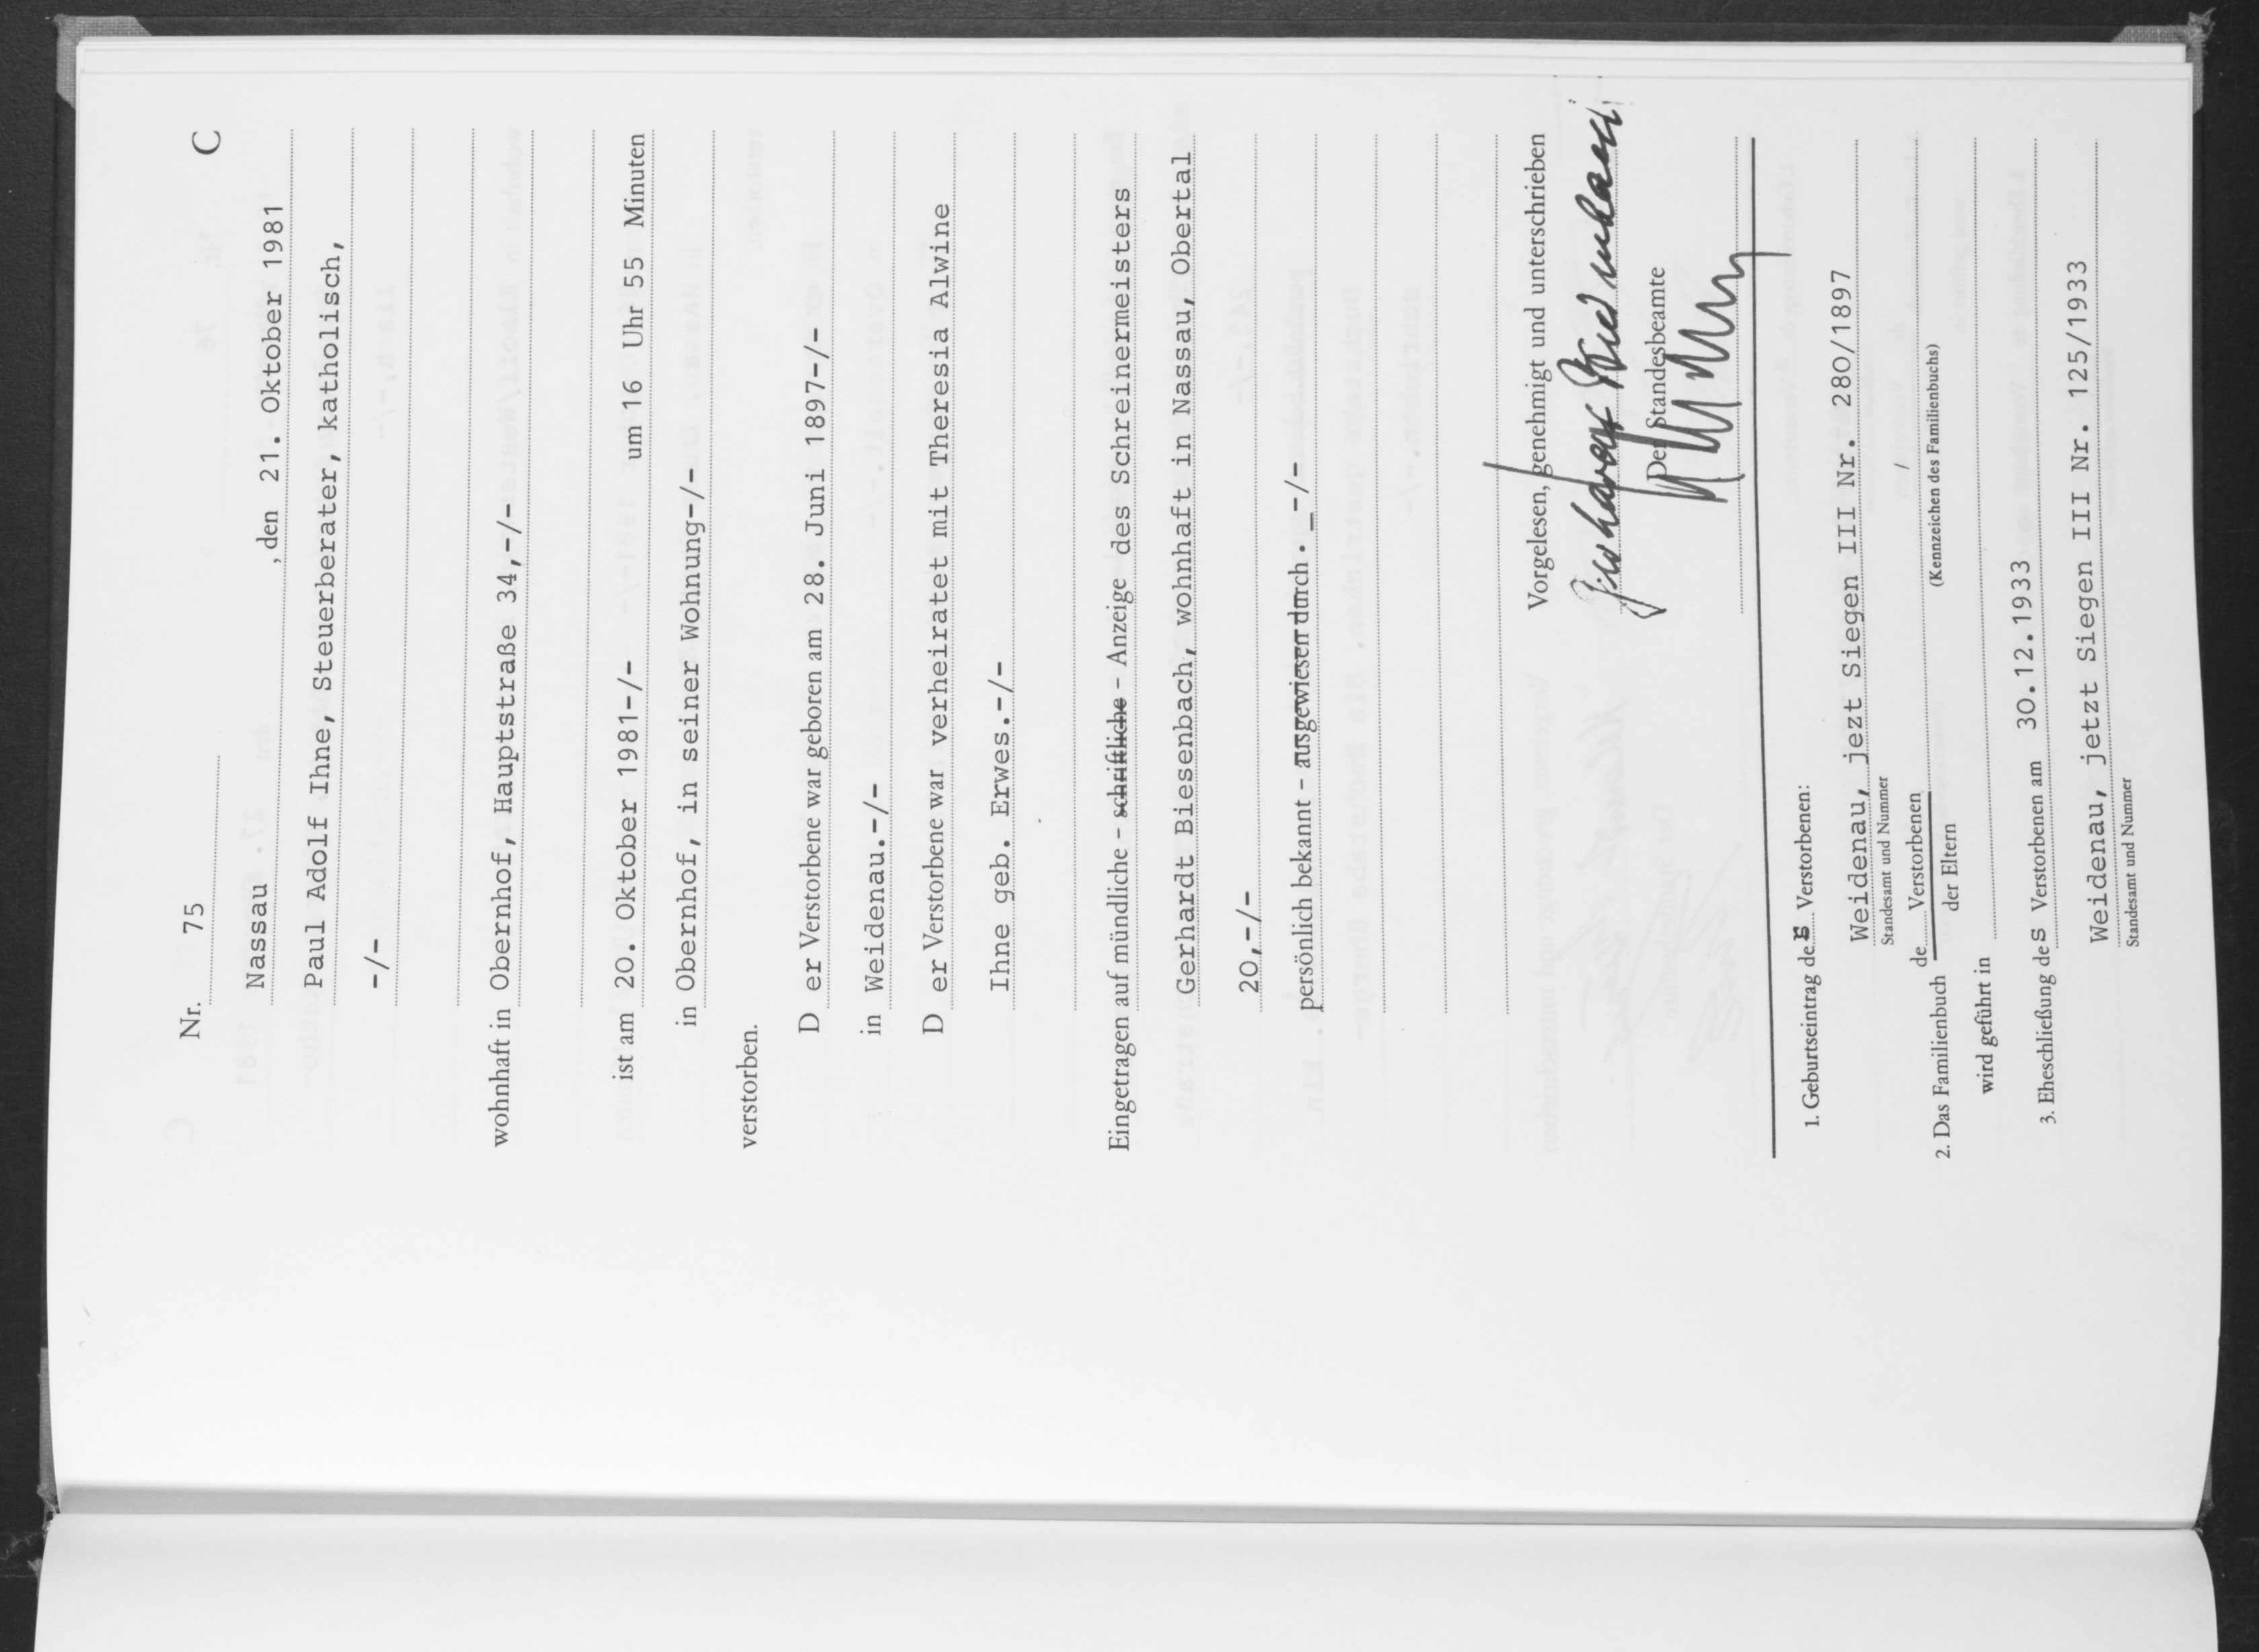 Nr. 75 C
Nassau , den 21. Oktober 1981
Paul Adolf Ihne, Steuerberater, katholisch,
-/-
wohnhaft in Obernhof, Hauptstraße 34,-/-
ist am 20. Oktober 1981-/- um 16 Uhr 55 Minuten
in Obernhof, in seiner Wohnung-/-
verstorben.
D er Verstorbene war geboren am 28. Juni 1897-/-
in Weidenau.-/-
D er Verstorbene war verheiratet mit Theresia Alwine
Ihne geb. Erwes.-/-
Eingetragen auf mündliche - schriftliche - Anzeige des Schreinermeisters
Gerhardt Biesenbach, wohnhaft in Nassau, Obertal
20,-/-
persönlich bekannt - ausgewiesen durch . _-/-
Vorgelesen, genehmigt und unterschrieben
Der Standesbeamte
1. Geburtseintrag des Verstorbenen:
Weidenau, jezt Siegen III Nr. 280/1897
Standesamt und Nummer
2. Das Familienbuch de Verstorbenen /
der Eltern (Kennzeichen des Familienbuchs)
wird geführt in
3. Eheschließung des Verstorbenen am 30.12.1933
Weidenau, jetzt Siegen III Nr. 125/1933
Standesamt und Nummer